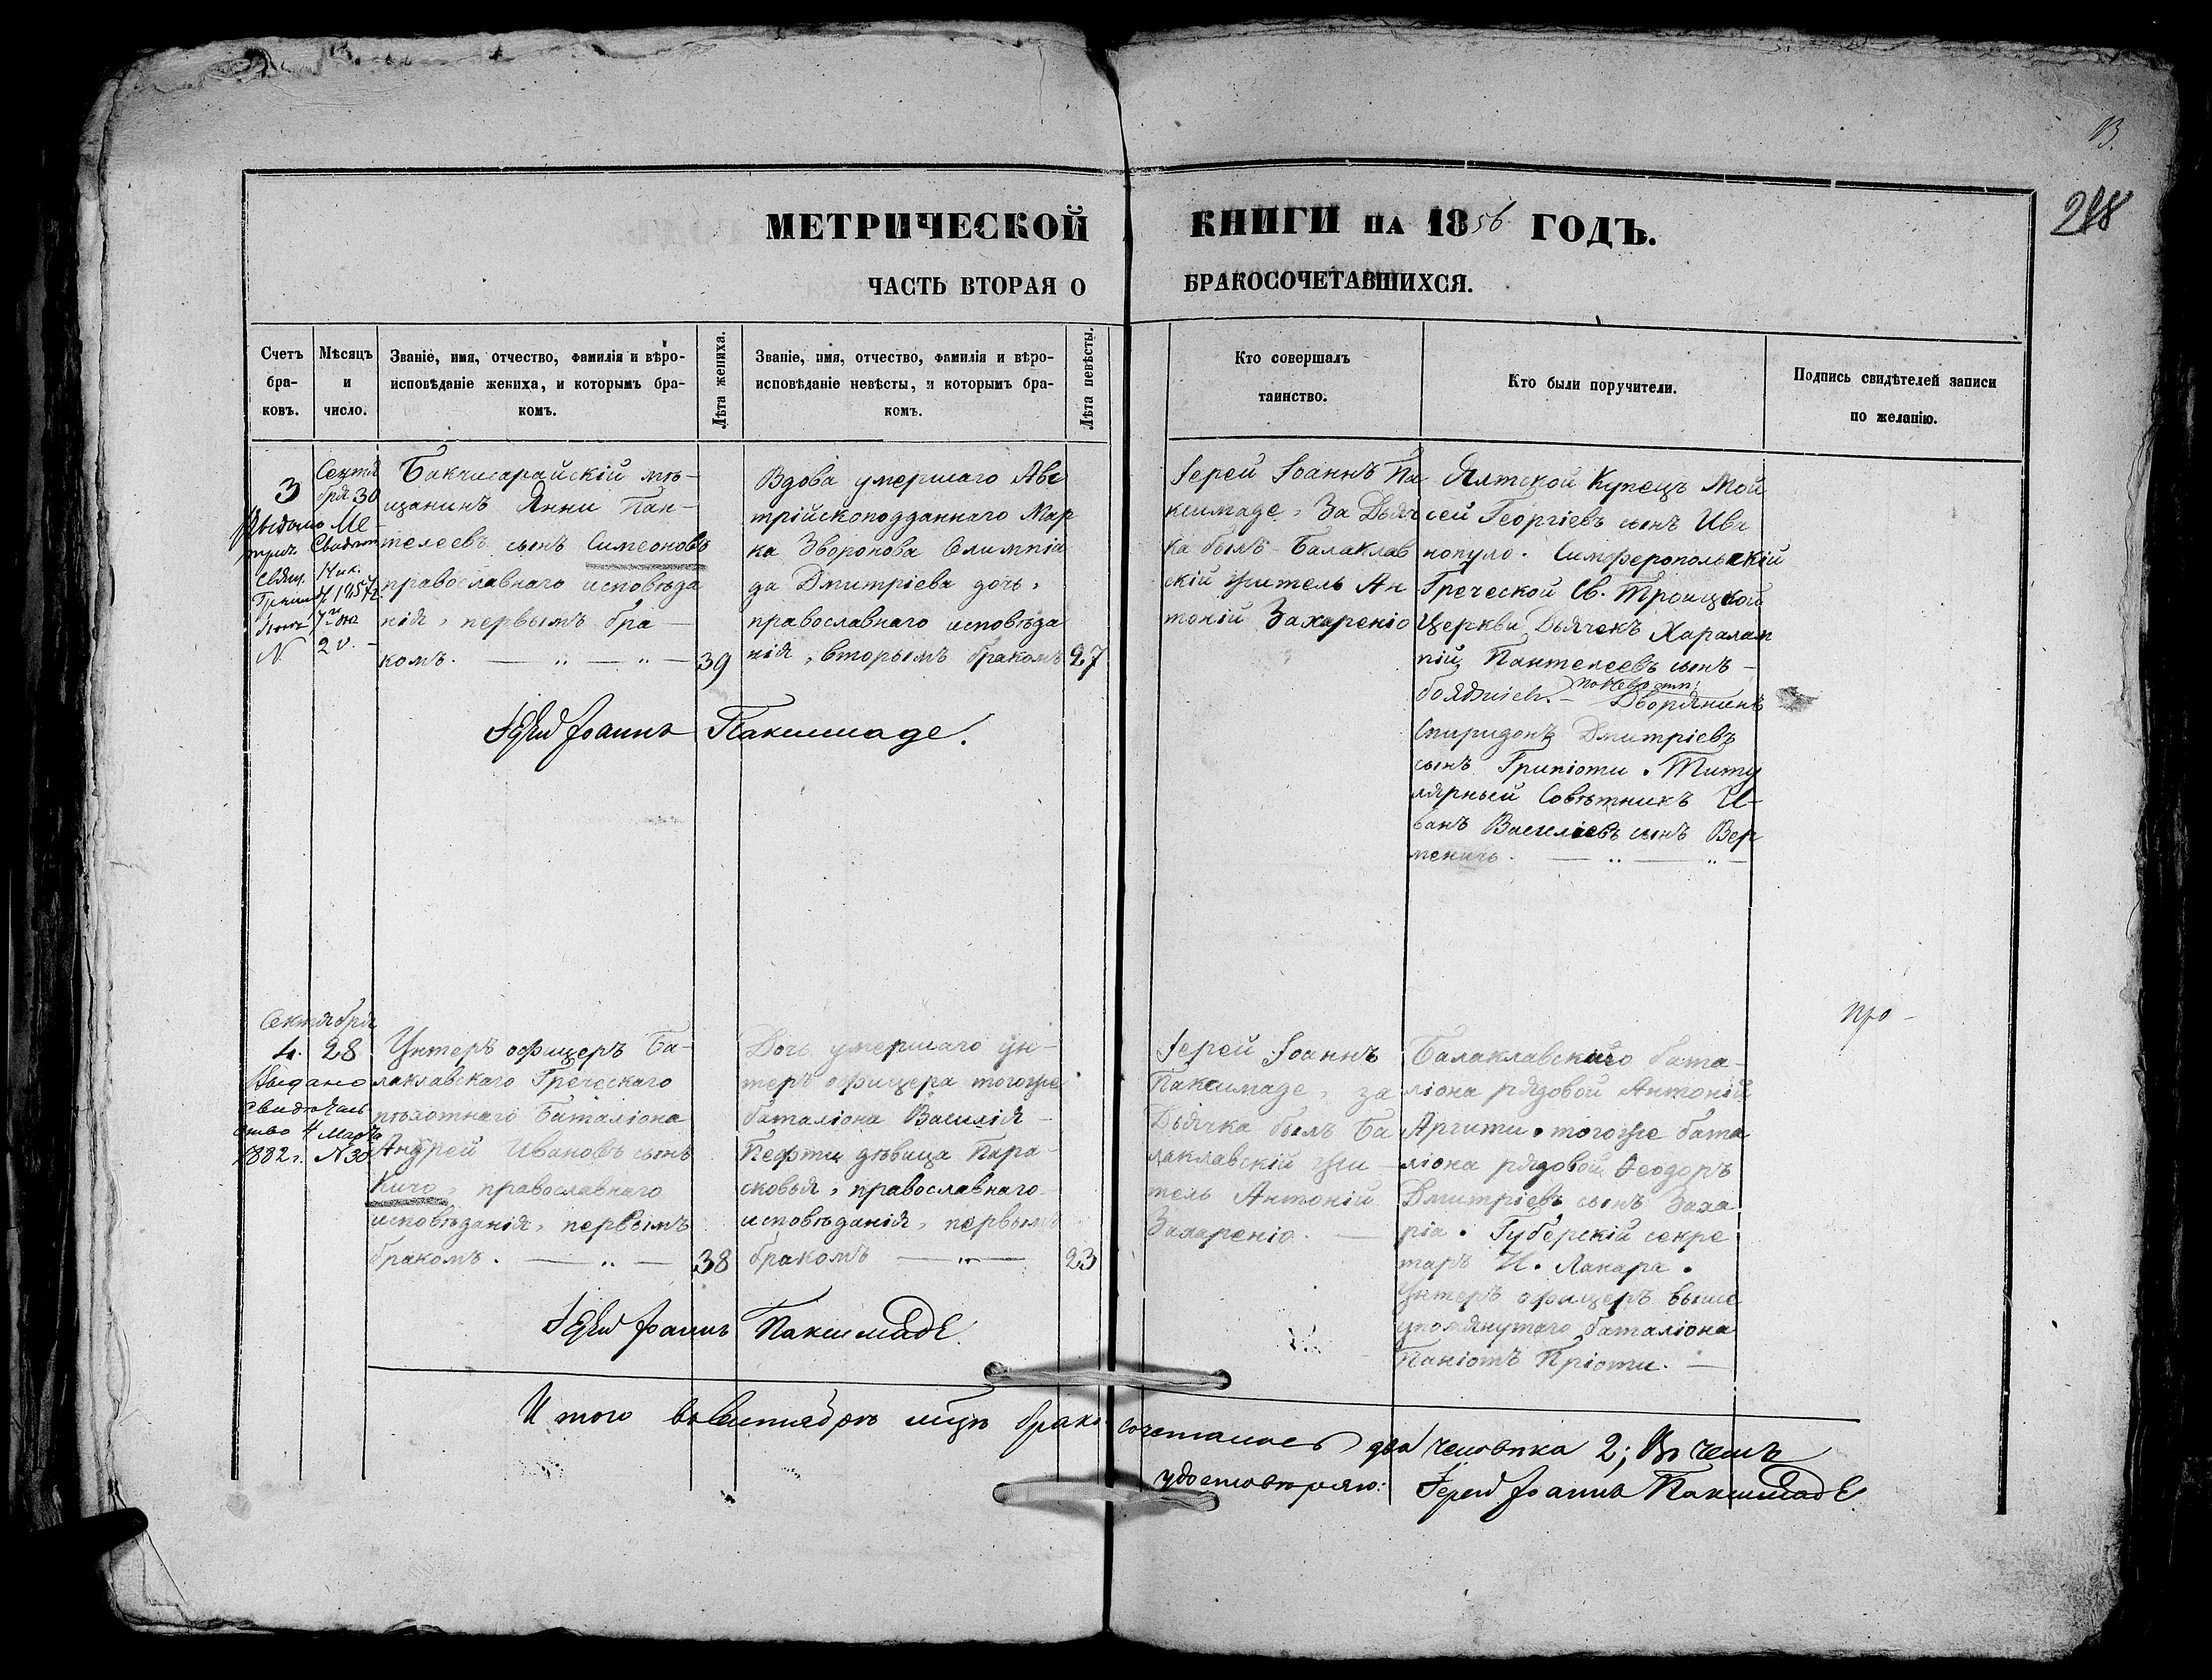 13.
218
МЕТРИЧЕСКОЙ КНИГИ НА 1856 ГОДЪ.
ЧАСТЬ ВТОРАЯ О БРАКОСОЧЕТАВШИХСЯ.
Счетъ
бра-
ковъ.
Мѣсяцъ
и
число.
Званіе, имя, отчество, фамилія и вѣро-
исповѣданіе жениха, и которымъ бра-
комъ.
Лѣта жениха.
Званіе, имя, отчество, фамилія и вѣро-
исповѣданіе невѣсты, и которымъ бра-
комъ.
Лѣта невѣсты.
Кто совершалъ
таинство.
Кто были поручители.
Подпись свидѣтелей записи
по желанію.
3
Сентя
бря 30
Выдано Ме-
трич. Свидет
Бакчисарайскій мѣ-
щанинъ Янни Пан-
телеевъ сынъ Симеоновъ
православнаго исповѣда
нія, первымъ бра-
комъ.
39
Вдова умершаго Авс
трійскоподданнаго Мар
ка Зворонова Олимпіа
да Дмитріева дочь,
православнаго исповѣда
нія, вторымъ бракомъ
27
Іерей Іоаннъ Па
ксимаде, За Дьяч
ка былъ Балаклав
скій житель Ан
тоній Захареніо
Ялтской Купецъ Мой
сей Георгіевъ сынъ Ива
нопуло. Симферопольскій
Греческой Св. Троицкой
Церкви Дьячекъ Харалам
пій Пантелеевъ сынъ-
бояджіевъ. - по невѣстѣ: Дворянинъ
Спиридонъ Дмитріевъ
сынъ Грипіоти. Титу
лярный Совѣтникъ И-
ванъ Василіевъ сынъ Вер
меничь.
Іерей Іоаннъ Паксимаде.
Сентября
4. 28
Выдано
свидѣтель
ство 4 Марта
1882 г. N 30
Унтеръ офицеръ Ба-
лаклавскаго Греческаго
пѣхотнаго Баталіона
Андрей Ивановъ сынъ
Кичо, православнаго
исповѣданія, первымъ
бракомъ.
38
Дочь умершаго ун-
теръ офицера тогоже
баталіона Василія
Пефти дѣвица Пара-
сковья, православнаго
исповѣданія, первымъ
бракомъ
23
Іерей Іоаннъ
Паксимаде, за
Дьячка былъ Ба
лаклавскій жи-
тель Антоній
Захареніо.
Балаклавскаго бата-
ліона рядовой Антоній
Аргити. тогоже бата
ліона рядовой Ѳеодоръ
Дмитріевъ сынъ Заха
ріа. Губерскій секре
таръ И. Лакара.
Унтеръ офицеръ выше
упомянутаго баталіона
Паніотъ Пріоти.
про-
Іерей Іоаннъ Паксимаде
И того въ Сентябрѣ мцѣ брако- сочеталось два человѣка 2; Въ чемъ
удостовѣряю: Іерей Іоаннъ Паксимаде.